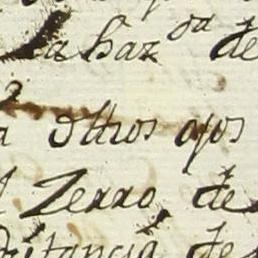 la haz.da de
a ottros ojos
l Zerro, de
distancia de